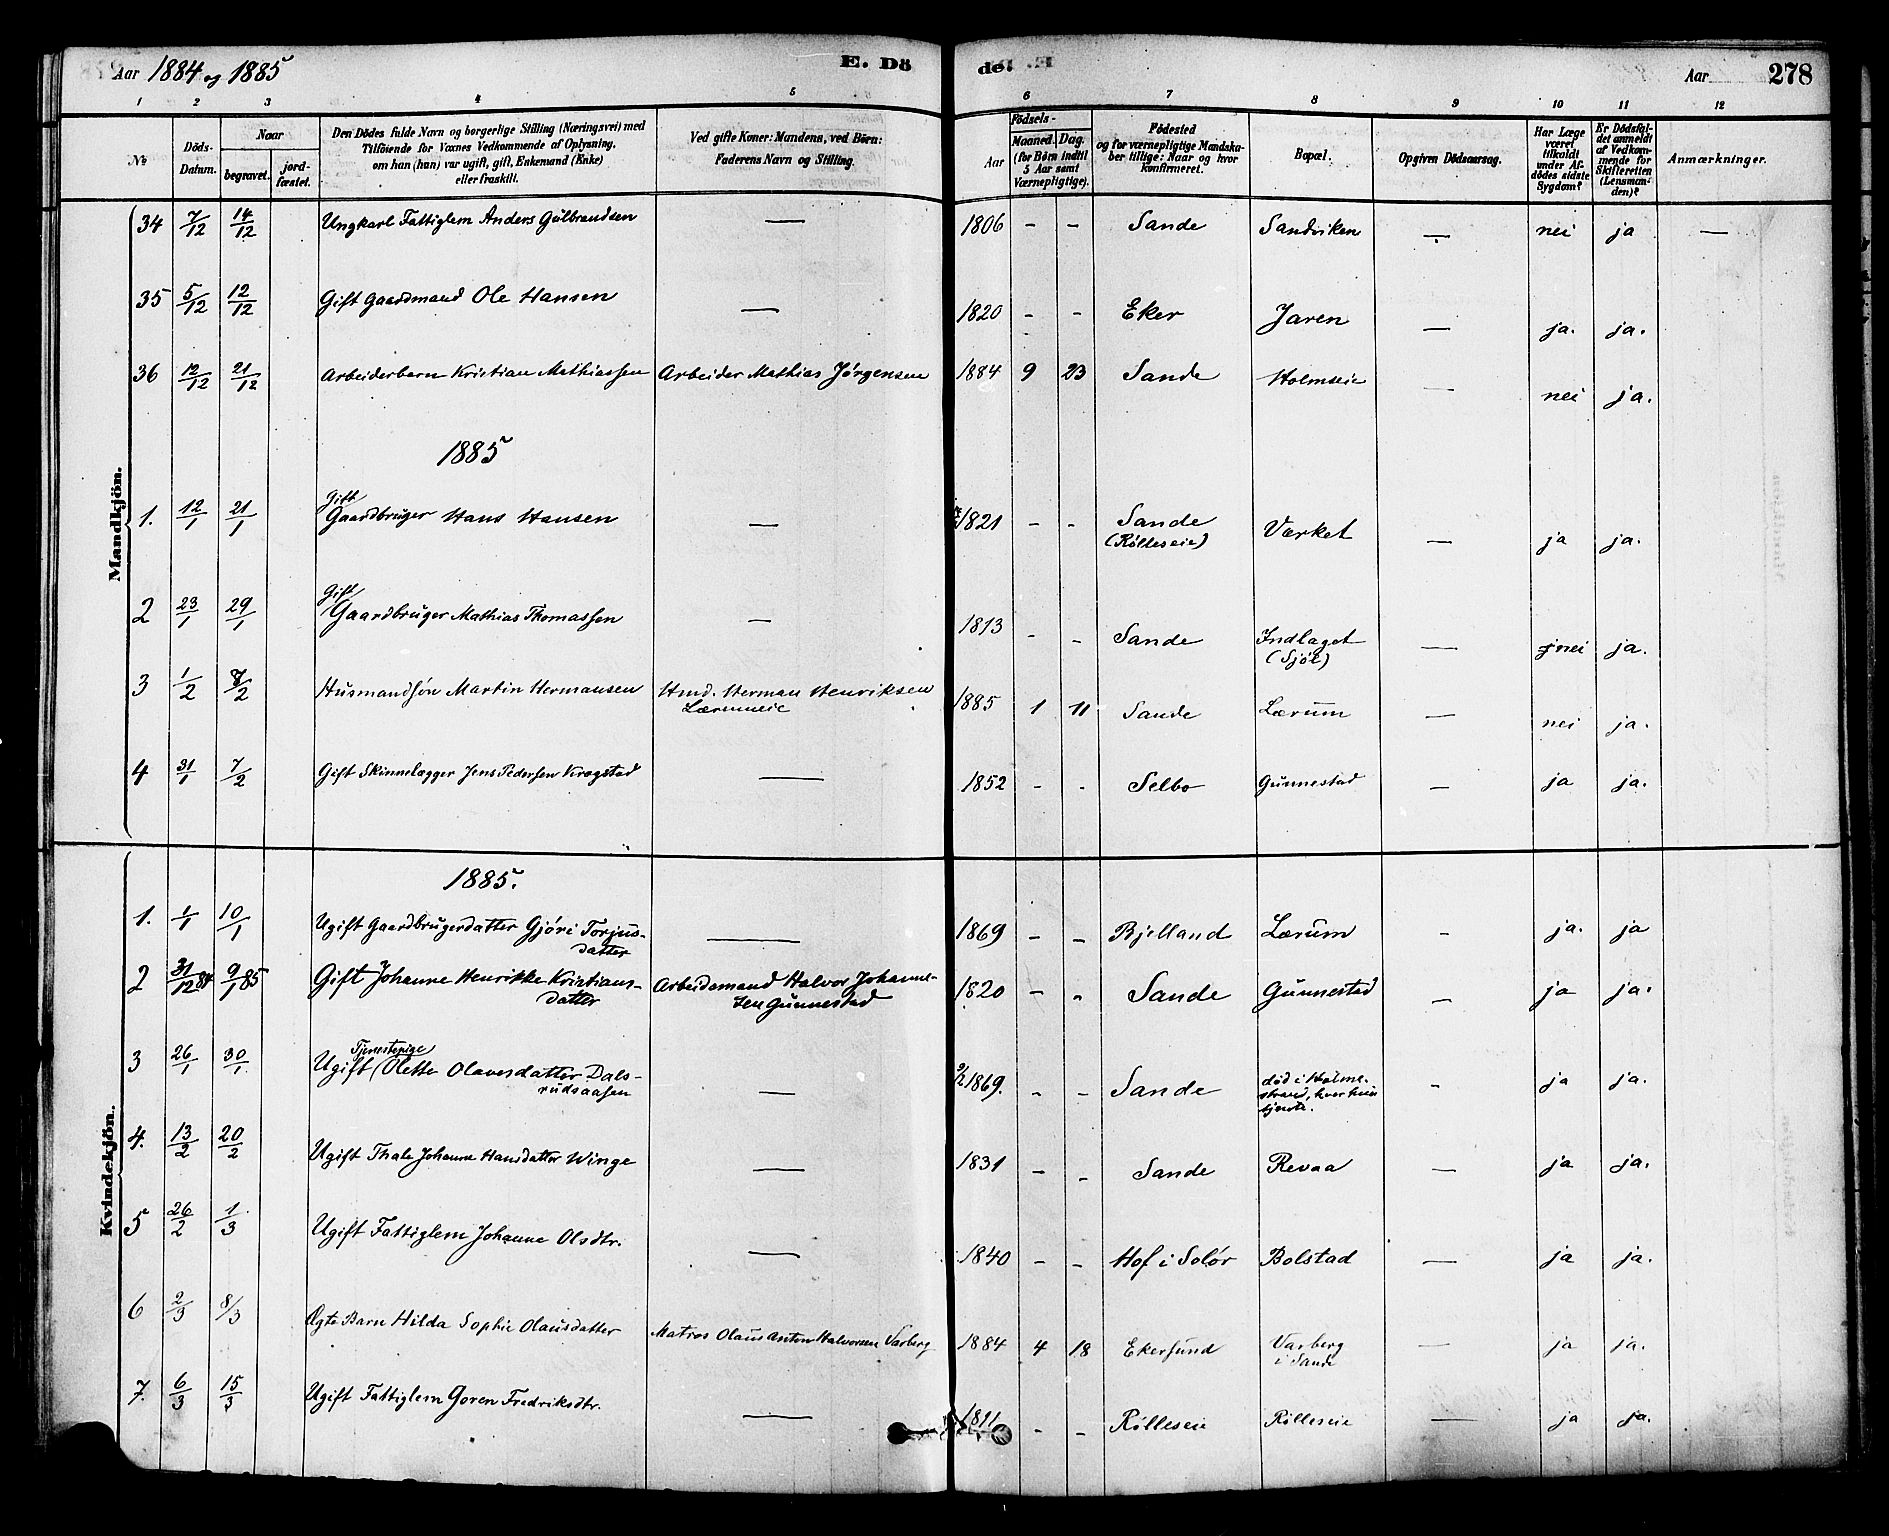 Aar 1884 og 1885 E. Dö de. Aar 278
1 2 3 4 5 6 7 8 9 10 11 12
No
Döds-Datum.
Naar
begravet.
jord-fæstet.
Den Dödes fulde Navn og borgerlige Stilling (Næringsvei) med
Tilföiende for Voxnes Vedkommende af Oplysning,
om han (hun) var ugift, gift, Enkemand (Enke)
eller fraskilt.
Ved gifte Koner: Mandens, ved Börn:
Faderens Navn og Stilling.
Födsels-
Aar
Maaned. Dag.
(for Börn indtil
5 Aar samt
Værnepligtige).
Födested
og for værnepligtige Mandska-
ber tillige: Naar og hvor
konfirmeret.
Bopæl.
Opgiven Dödsaarsag.
Har Læge
været
tilkaldt
under Af-
dödes sidste
Sygdom?
Er Dödsfal-
det anmeldt
af Vedkom-
mende for
Skifteretten
(Lensman-
den)?
Anmærkninger.
Mandkjön.
34 7/12 14/12 Ungkarl Fattiglem Anders Gulbrandsen — 1806 - - Sande Sandviken — nei ja —
35 5/12 12/12 Gift Gaardmand Ole Hansen — 1820 - - Eker Jaren — ja. ja.
36 12/12 21/12 Arbeiderbarn Kristian Mathiassen Arbeider Mathias Jørgensen 1884 9 23 Sande Holmseie — nei ja.
1885
1. 12/1 21/1 Gift Gaardbruger Hans Hansen — 1821 - - Sande Værket — ja ja.
(Rølleseie)
2 23/1 29/1 Gift Gaardbruger Mathias Thomassen — 1813 - - Sande Indlaget — nei ja.
3 1/2 8/2 Husmandsøn Martin Hermansen Hmd. Herman Henriksen 1885 1 11 Sande Lærum — nei ja.
4 31/1 7/2 Gift Skinnelægger Jens Pedersen Kragstad — 1852 - - Selbo Gunnestad — ja ja.
Kvindekjön.
1885.
1. 1/1 10/1 Ugift Gaardbrugerdatter Gjøri Torjus- — 1869 - - Bjelland Lærum - ja. ja
datter
2 31/12 84 9/1 85 Gift Johanne Henrikke Kristians- Arbeidsmand Halvor Johanne- 1820 - - Sande Gunnestad — ja ja.
datter sen Gunnestad
3 26/1 30/1 Ugift Tjenestepige Olette Olavesdatter Dals- — 9/2 1869. - - Sande død i Holme- - ja ja.
rudsaasen strand, hvor hun
tjente.
4. 13/2 20/2 Ugift Thale Johanne Hansdatter Winge — 1831 - - Sande Revaa — ja ja.
5 26/2 1/3 Ugift Fattiglem Johanne Olsdtr. — 1840 - - Hof i Solør Bolstad — ja ja.
6 2/3 8/3 Ægte Barn Hilda Sophie Olausdatter Matros Olaus Anton Halvorsen Varberg 1884 4 18 Ekersund Varberg — ja ja.
i Sande
7. 6/3 15/3 Ugift Fattiglem Goren Fredriksdtr. — 1811 - - Rølleseie Rølleseie — ja ja.